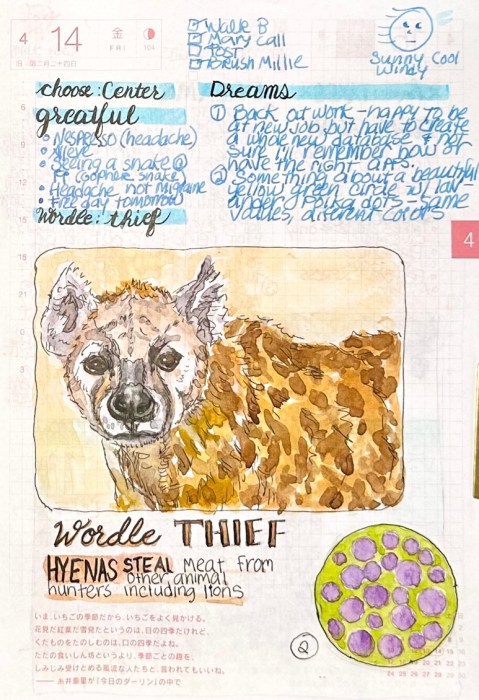 4 14 金
□ Walk B
□ Mary Call
□ Post
□ Brush Millie
Sunny Cool
Windy
choose: Center
greatful
• Nespresso (headache)
• Seeing a snake @
(Gopher snake)
• Headache not migraine
• Free day tomorrow
Wordle: thief
Dreams
① Back at work - happy to be
at new job but have to create
a whole new database & not
sure I'll remember how or
have the right apps.
② Something about a beautiful
yellow green circle w/ lav-
ender polka dots - same
values, different colors
6
18
21
0
3
4
Wordle THIEF
HYENAS STEAL meat from
other animal
hunters including lions
②
いま、いちごの季節だから、いちごをよく見かける。
花見だ紅葉だ雪見だというのは、目の四季だけれど、
くだものをたのしむのは、口の四季だよね。
ただの食いしん坊というより、季節ごとの趣を、
しみじみ受けとめる風流な人たちと、言われてもいいね。
—— 糸井重里が『今日のダーリン』の中で